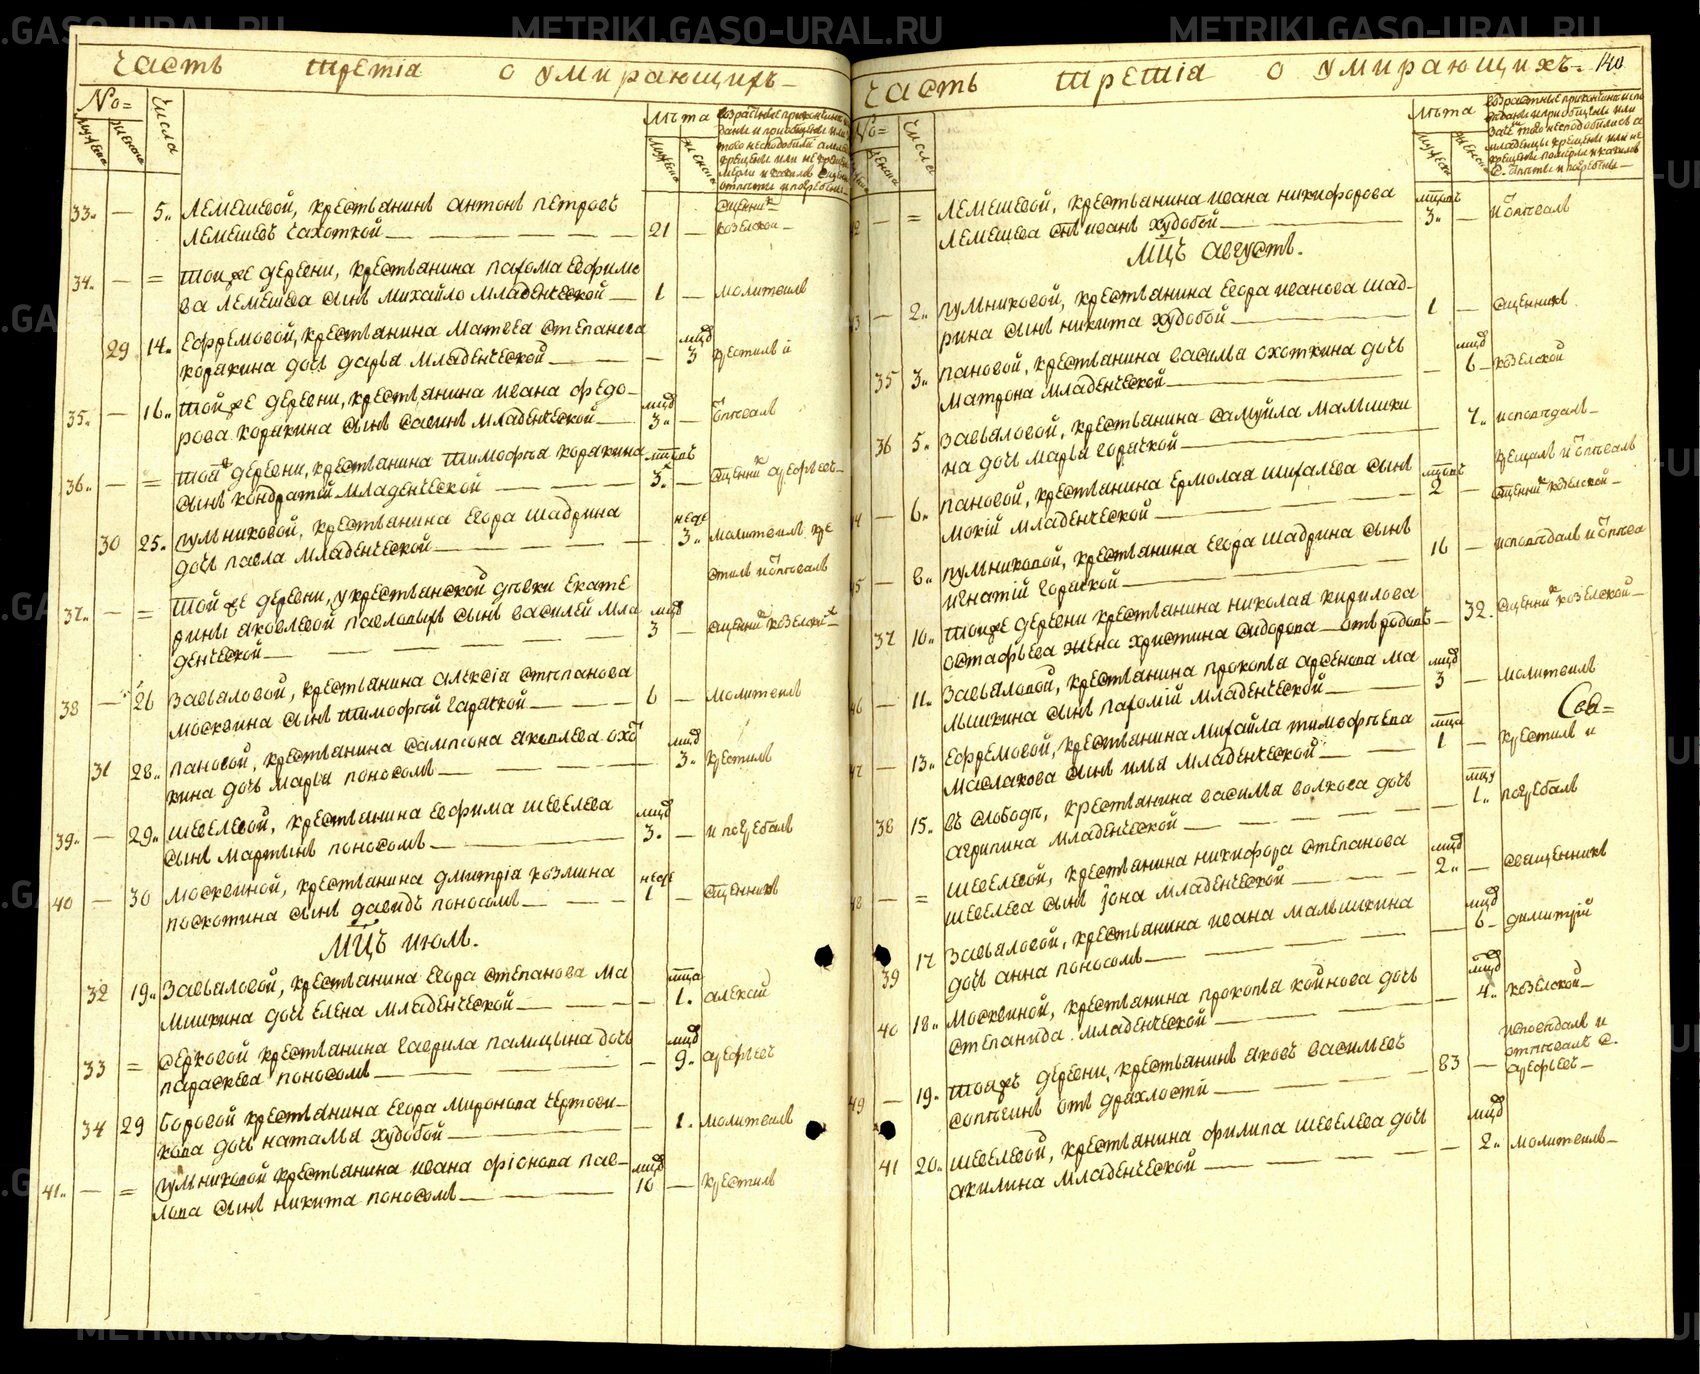 Часть третіа о умирающихъ
No
мужеска
женска
числа
лѣта
мужеска
женска
33. — 5. Лемешевой, крестьянинъ антонъ петровъ
Лемешевъ чахоткой 21 —
34. — = тоиже деревни, крестьянина пахома ефимо
ва лемешева сынъ михайло младенческой 1 — молитвилъ
29 14. Ефремовой, крестьянина матвеа степанова
корякина дочь дарья младенческой — мцд 3 крестилъ и
35. — 16. тойже деревни, крестьянина ивана федо-
рова корякина сынъ савинъ младенческой мцд 3. — отпѣвалъ
36. — = тоя деревни, крестьянина тимофѣа корякина
сынъ кондратій младенческой 3. — сщенник арефьевъ
30 25. пульниковой, крестьянина егора шадрина
дочь павла младенческой — неде 3. молитвилъ кре
стилъ и отпѣвалъ
37. — = тойже деревни, у крестьянской дѣвки екате
рины яковлевой павловыхъ сынъ василей мла
денческой мцд 3 — сщенник козелской
38 — 26 Завьяловой, крестьянина алексіа степанова
москвина сынъ тимофей горячкой 6 — молитвилъ
31 28. пановой, крестьянина сампсона яковлева охот
кина дочь марья поносомъ мцд 3. крестилъ
39. — 29. шевелевой, крестьянина ефима шевелева
сынъ мартынъ поносомъ мцд 3. — и погребалъ
40 — 30 москвиной, крестьянина дмитріа козмина
поскотина сынъ давидъ поносомъ неде 1 — сщенникъ
мцъ июль.
32 19. Завьяловой, крестьянина егора степанова ма
мшкина дочь елена младенческой — мца 1. алексій
33 = серковой крестьянина гаврила палицына дочь
параскева поносомъ — мцд 9. арефьевъ
34 29 боровой крестьянина егора миронова чертови-
кова дочь наталья худобой — 1. молитвилъ
41. — = пульниковой крестьянина ивана фіонова пав-
лова сынъ никита поносомъ мцд 10 — крестилъ
Часть третіа о умирающихъ 140
No
женска
числа
лѣта
мужеска
женска
— = Лемешевой, крестьянина ивана никифорова
лемешева снъ иванъ худобой 3. — и отпѣвалъ
мцъ августъ.
— 2. пульниковой, крестьянина егора иванова шад-
рина сынъ никита худобой 1 — сщенникъ
35 3. пановой, крестьянина василья охоткина дочь
матрона младенческой — мцд 6 козелской
36 5. Завьяловой, крестьянина самуйла малышки
на дочь марья горячкой 7. исповѣдалъ
крещалъ и отпѣвалъ
— 6. пановой, крестьянина ермолая шихалева сынъ
мокій младенческой 2 — сщенник козелской
— 8. пульниковой, крестьянина егора шадрина сынъ
игнатій горячкой 16 — исповѣдалъ и отпѣва
37 10. тоиже деревни крестьянина николая кирилова
остафьева жена христина сидорова отъ родовъ 32. сщенник козелской
— 11. Завьяловой, крестьянина прокопья арсенова ма
лышкина сынъ пахомій младенческой мцд 3 — молитвилъ
Сва=
— 13. Ефремовой, крестьянина михайла тимофѣева
маслакова сынъ илья младенческой мца 1 — крестилъ и
38 15. въ слободѣ, крестьянина василья волкова дочь
агрипина младенческой — мцу 1. погребалъ
— = шевелевой, крестьянина никифора степанова
шевелева сынъ іона младенческой мцд 2. — священникъ
39 17 Завьяловой, крестьянина ивана малышкина
дочь анна поносомъ — мцд 6 димитрій
40 18. москвиной, крестьянина прокопья койнова дочь
степанида младенческой — мцд 4. козелской
исповѣдалъ и
49 — 19. тояжъ деревни, крестьянинъ яковъ васильевъ 83 — отпѣвалъ С.
сопѣгинъ отъ драхлости арефьевъ
41 20. шевелевой, крестьянина филипа шевелева дочь
акилина младенческой — мцд 2. молитвилъ